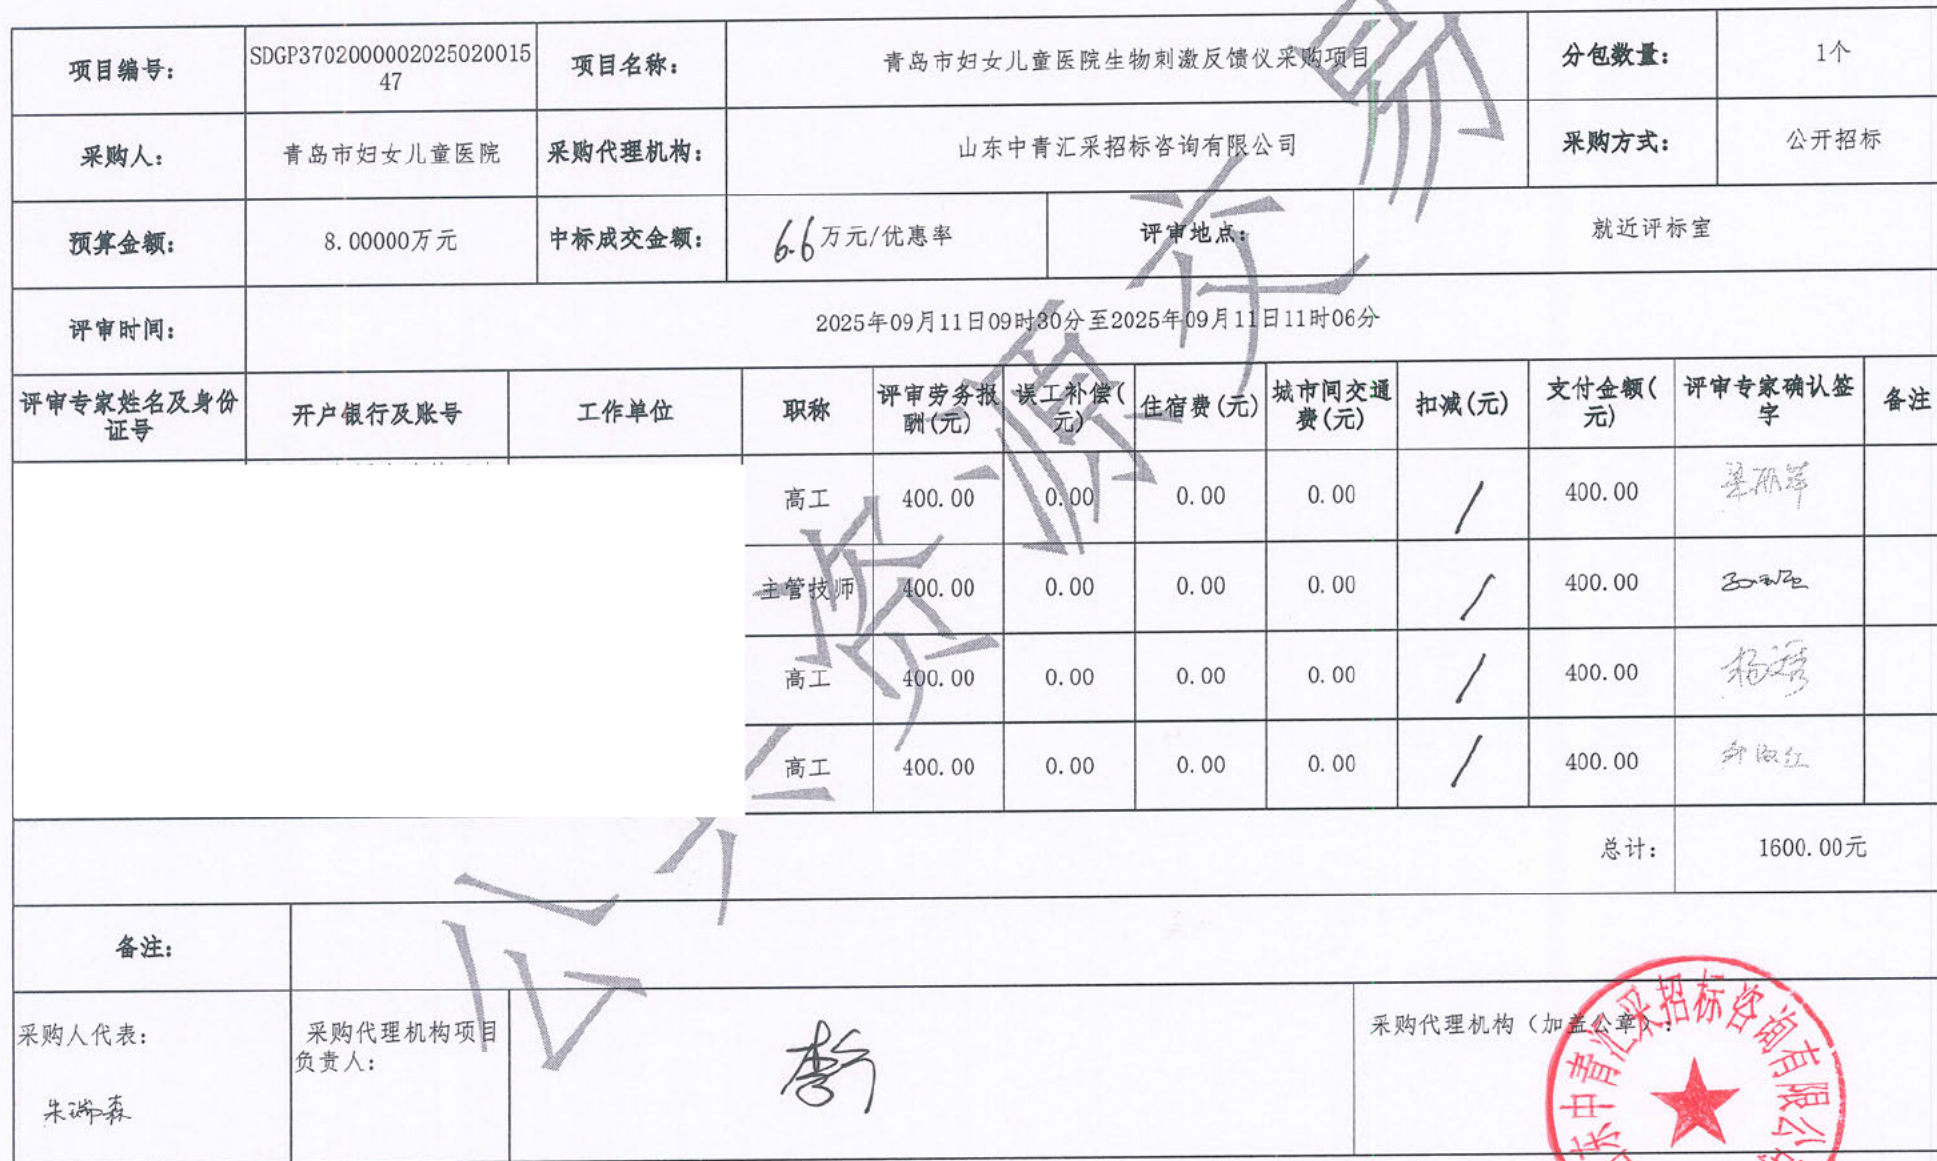 项目编号: SDGP3702000002025020015 项目名称: 青岛市妇女儿童医院生物刺激反馈仪采购项目 分包数量: 1个
47
采购人: 青岛市妇女儿童医院 采购代理机构: 山东中青汇采招标咨询有限公司 采购方式: 公开招标
预算金额: 8.00000万元 中标成交金额: 6.6万元/优惠率 评审地点: 就近评标室
评审时间: 2025年09月11日09时30分至2025年09月11日11时06分
评审专家姓名及身份 开户银行及账号 工作单位 职称 评审劳务报 误工补偿( 住宿费(元) 城市间交通 扣减(元) 支付金额( 评审专家确认签 备注
证号 酬(元) 元) 费(元) 元) 字
高工 400.00 0.00 0.00 0.00 / 400.00
主管技师 400.00 0.00 0.00 0.00 / 400.00
高工 400.00 0.00 0.00 0.00 / 400.00
高工 400.00 0.00 0.00 0.00 / 400.00
总计: 1600.00元
备注:
采购人代表: 采购代理机构项目 采购代理机构（加盖公章）:
负责人:
朱瑞森
东中青汇采招标咨询有限公
公共资源交易